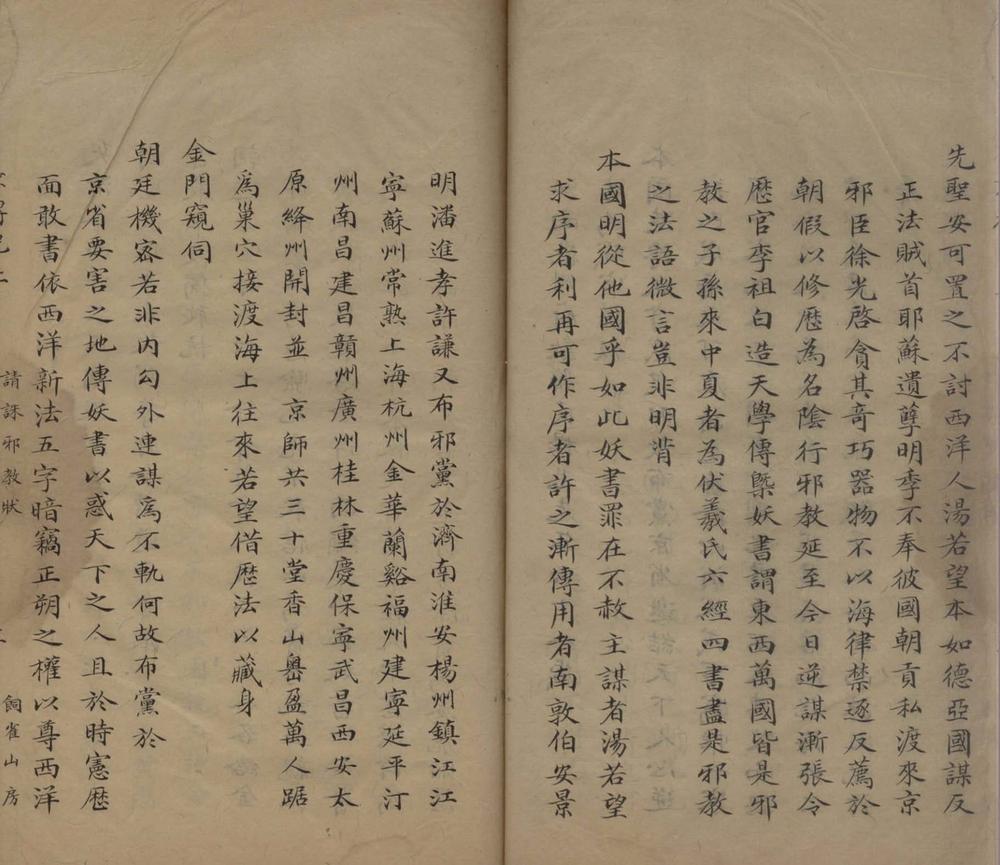 先聖安可置之不討西洋人湯若望本如德亞國謀反
正法賊首耶蘇遺孽明季不奉彼國朝貢私渡來京
邪臣徐光啓貪其奇巧器物不以海律禁逐反薦於
朝假以修歷為名陰行邪教延至今日逆謀漸張令
歷官李祖白造天學傳槩妖書謂東西萬國皆是邪
教之子孫來中夏者為伏羲氏六經四書盡是邪教
之法語微言豈非明背
本國明從他國乎如此妖書罪在不赦主謀者湯若望
求序者利再可作序者許之漸傳用者南敦伯安景
明潘進孝許謙又布邪黨於濟南淮安楊州鎮江江
寧蘇州常熟上海杭州金華蘭谿福州建寧延平汀
州南昌建昌贛州廣州桂林重慶保寧武昌西安太
原絳州開封並京師共三十堂香山嶴盈萬人踞
爲巢穴接渡海上往來若望借歷法以藏身
金門窺伺
朝廷機密若非內勾外連謀爲不軌何故布黨於
京省要害之地傳妖書以惑天下之人且於時憲歷
面敢書依西洋新法五字暗竊正朔之權以尊西洋
請誅邪教狀
飼雀山房